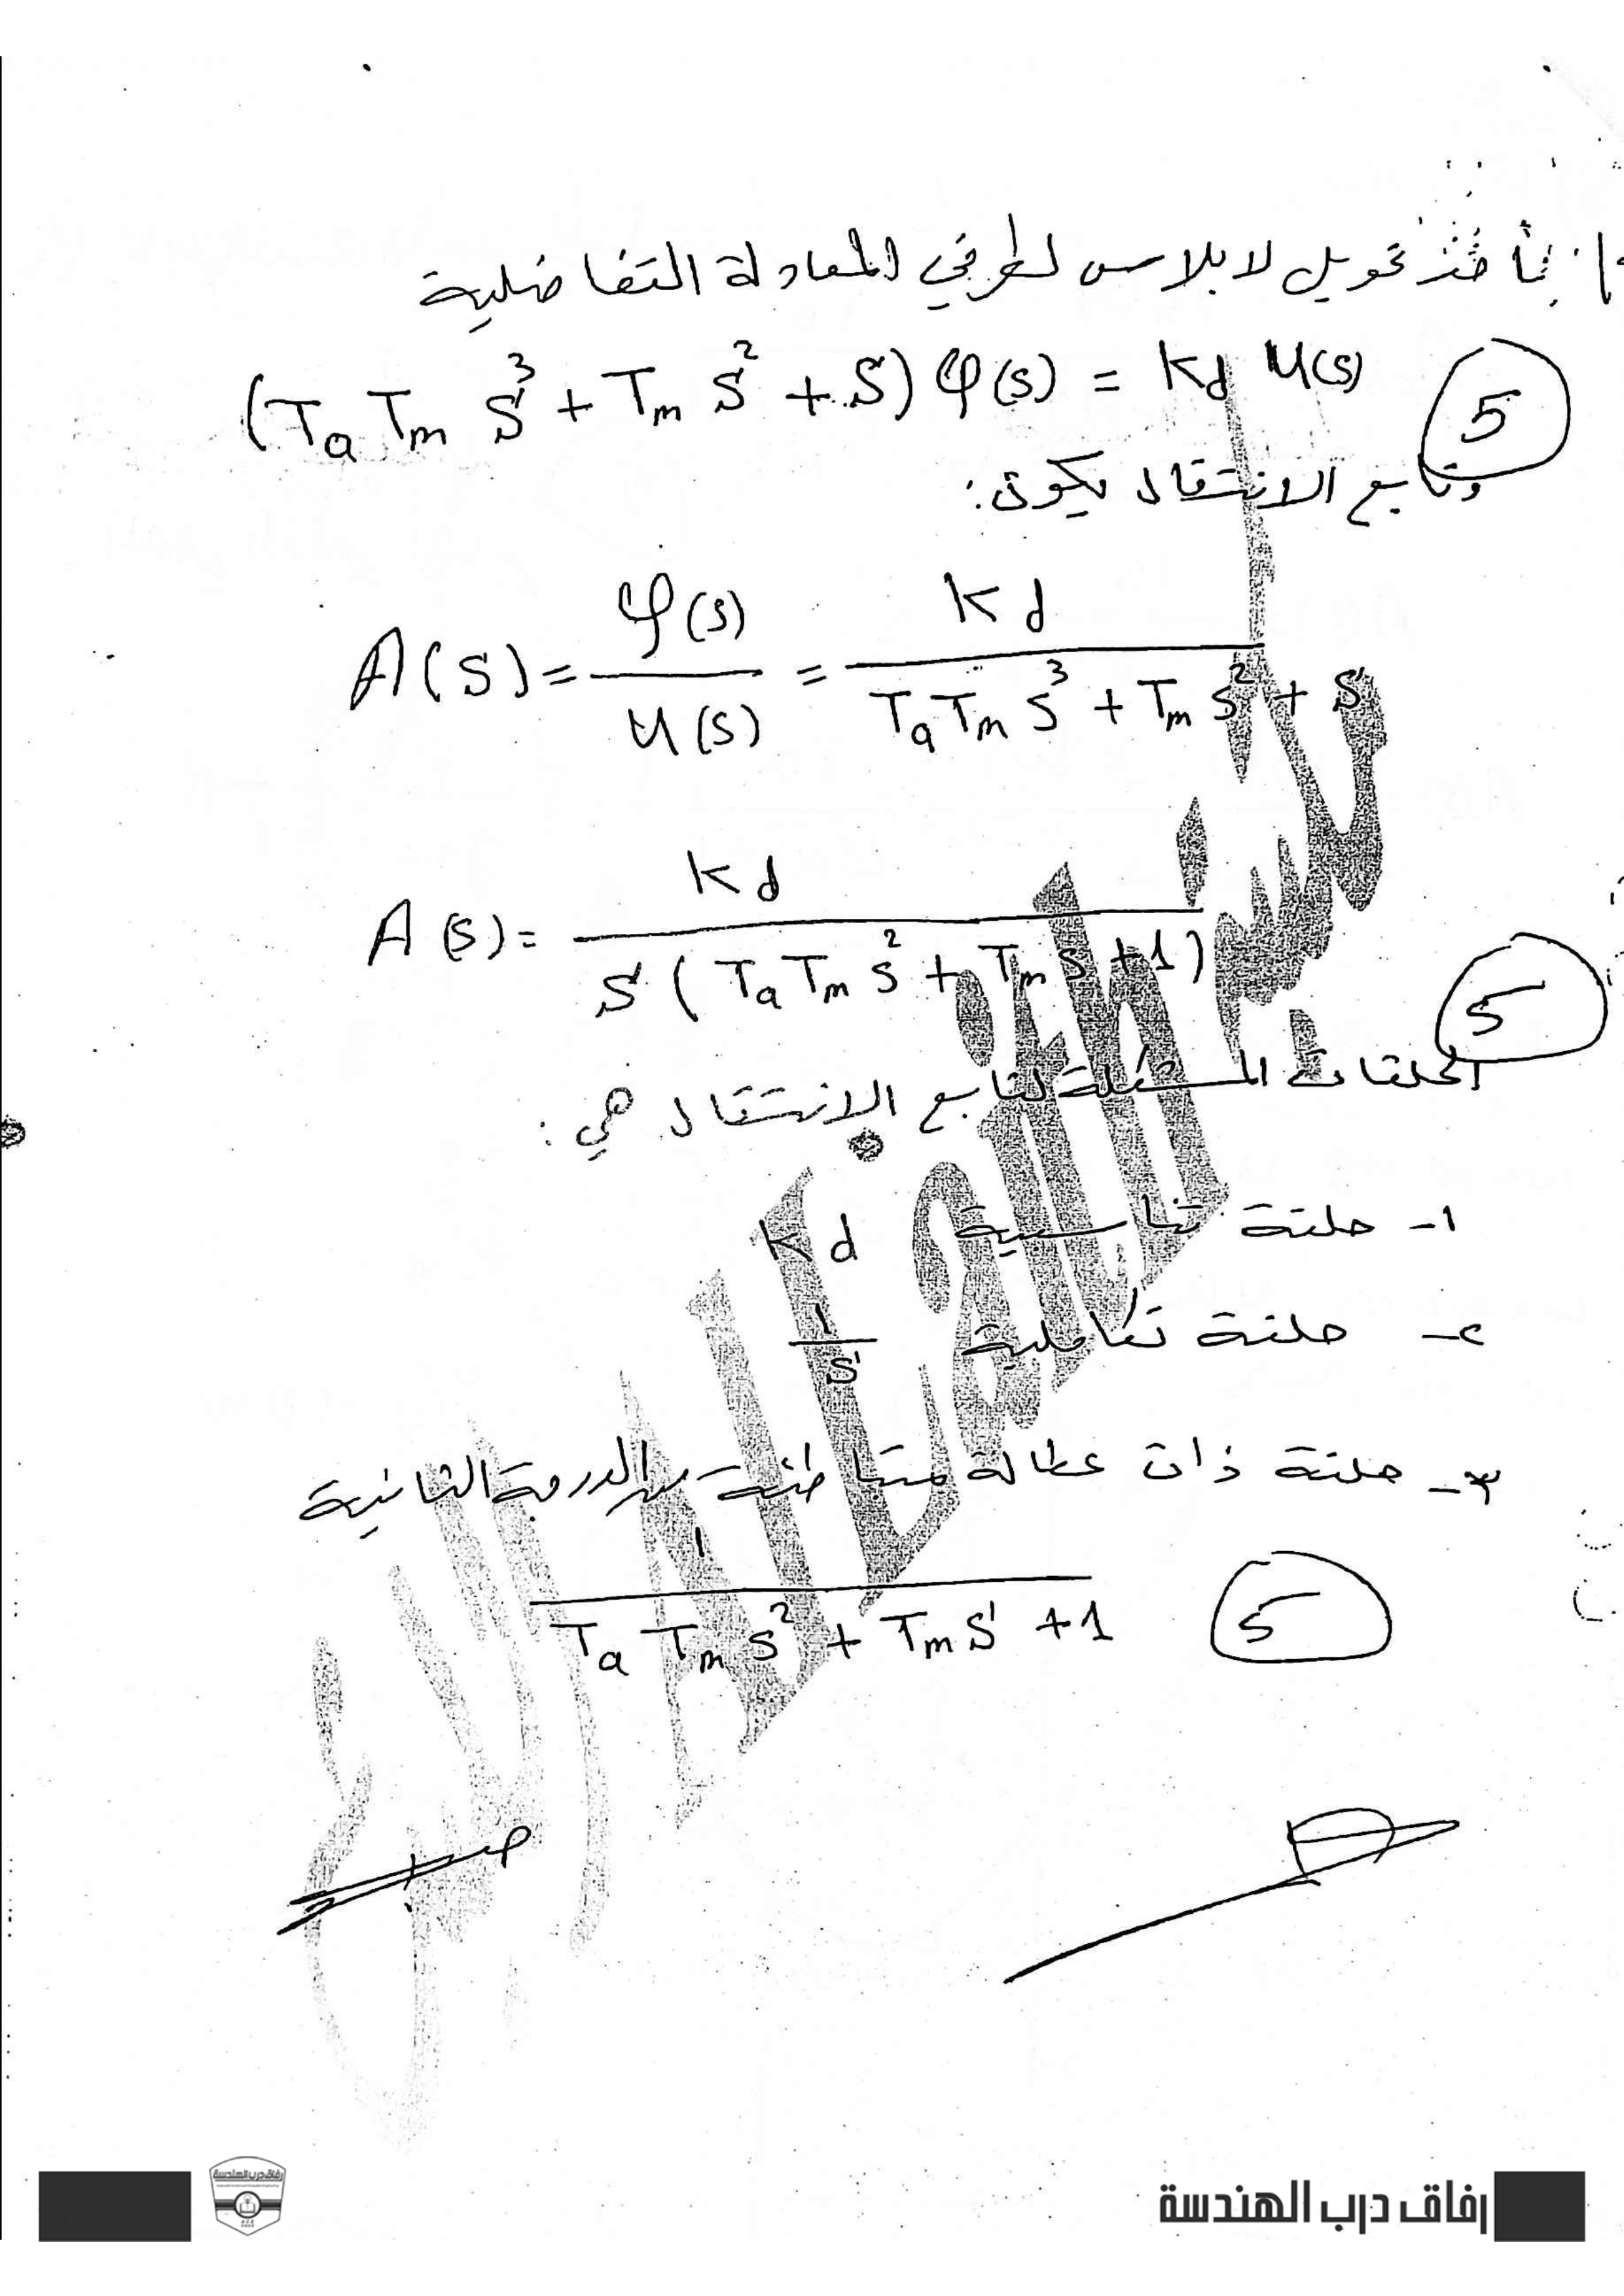 نأخذ تحويل لابلاس لطرفي المعادلة التفاضلية
(Ta Tm S³ + Tm S² + S) φ(s) = Kd U(s)
5
وتابع الانتقال يكون:
A(S) = φ(s) / U(s) = Kd / (Ta Tm S³ + Tm S² + S)
A(S) = Kd / (S (Ta Tm S² + Tm S + 1))
5
الحلقات المشكلة لتابع الانتقال هي:
١- حلقة تناسبية Kd
٢- حلقة تكاملية 1/S
٣- حلقة ذات عطالة من الدرجة الثانية
1 / (Ta Tm S² + Tm S + 1)
5
رفاق درب الهندسة